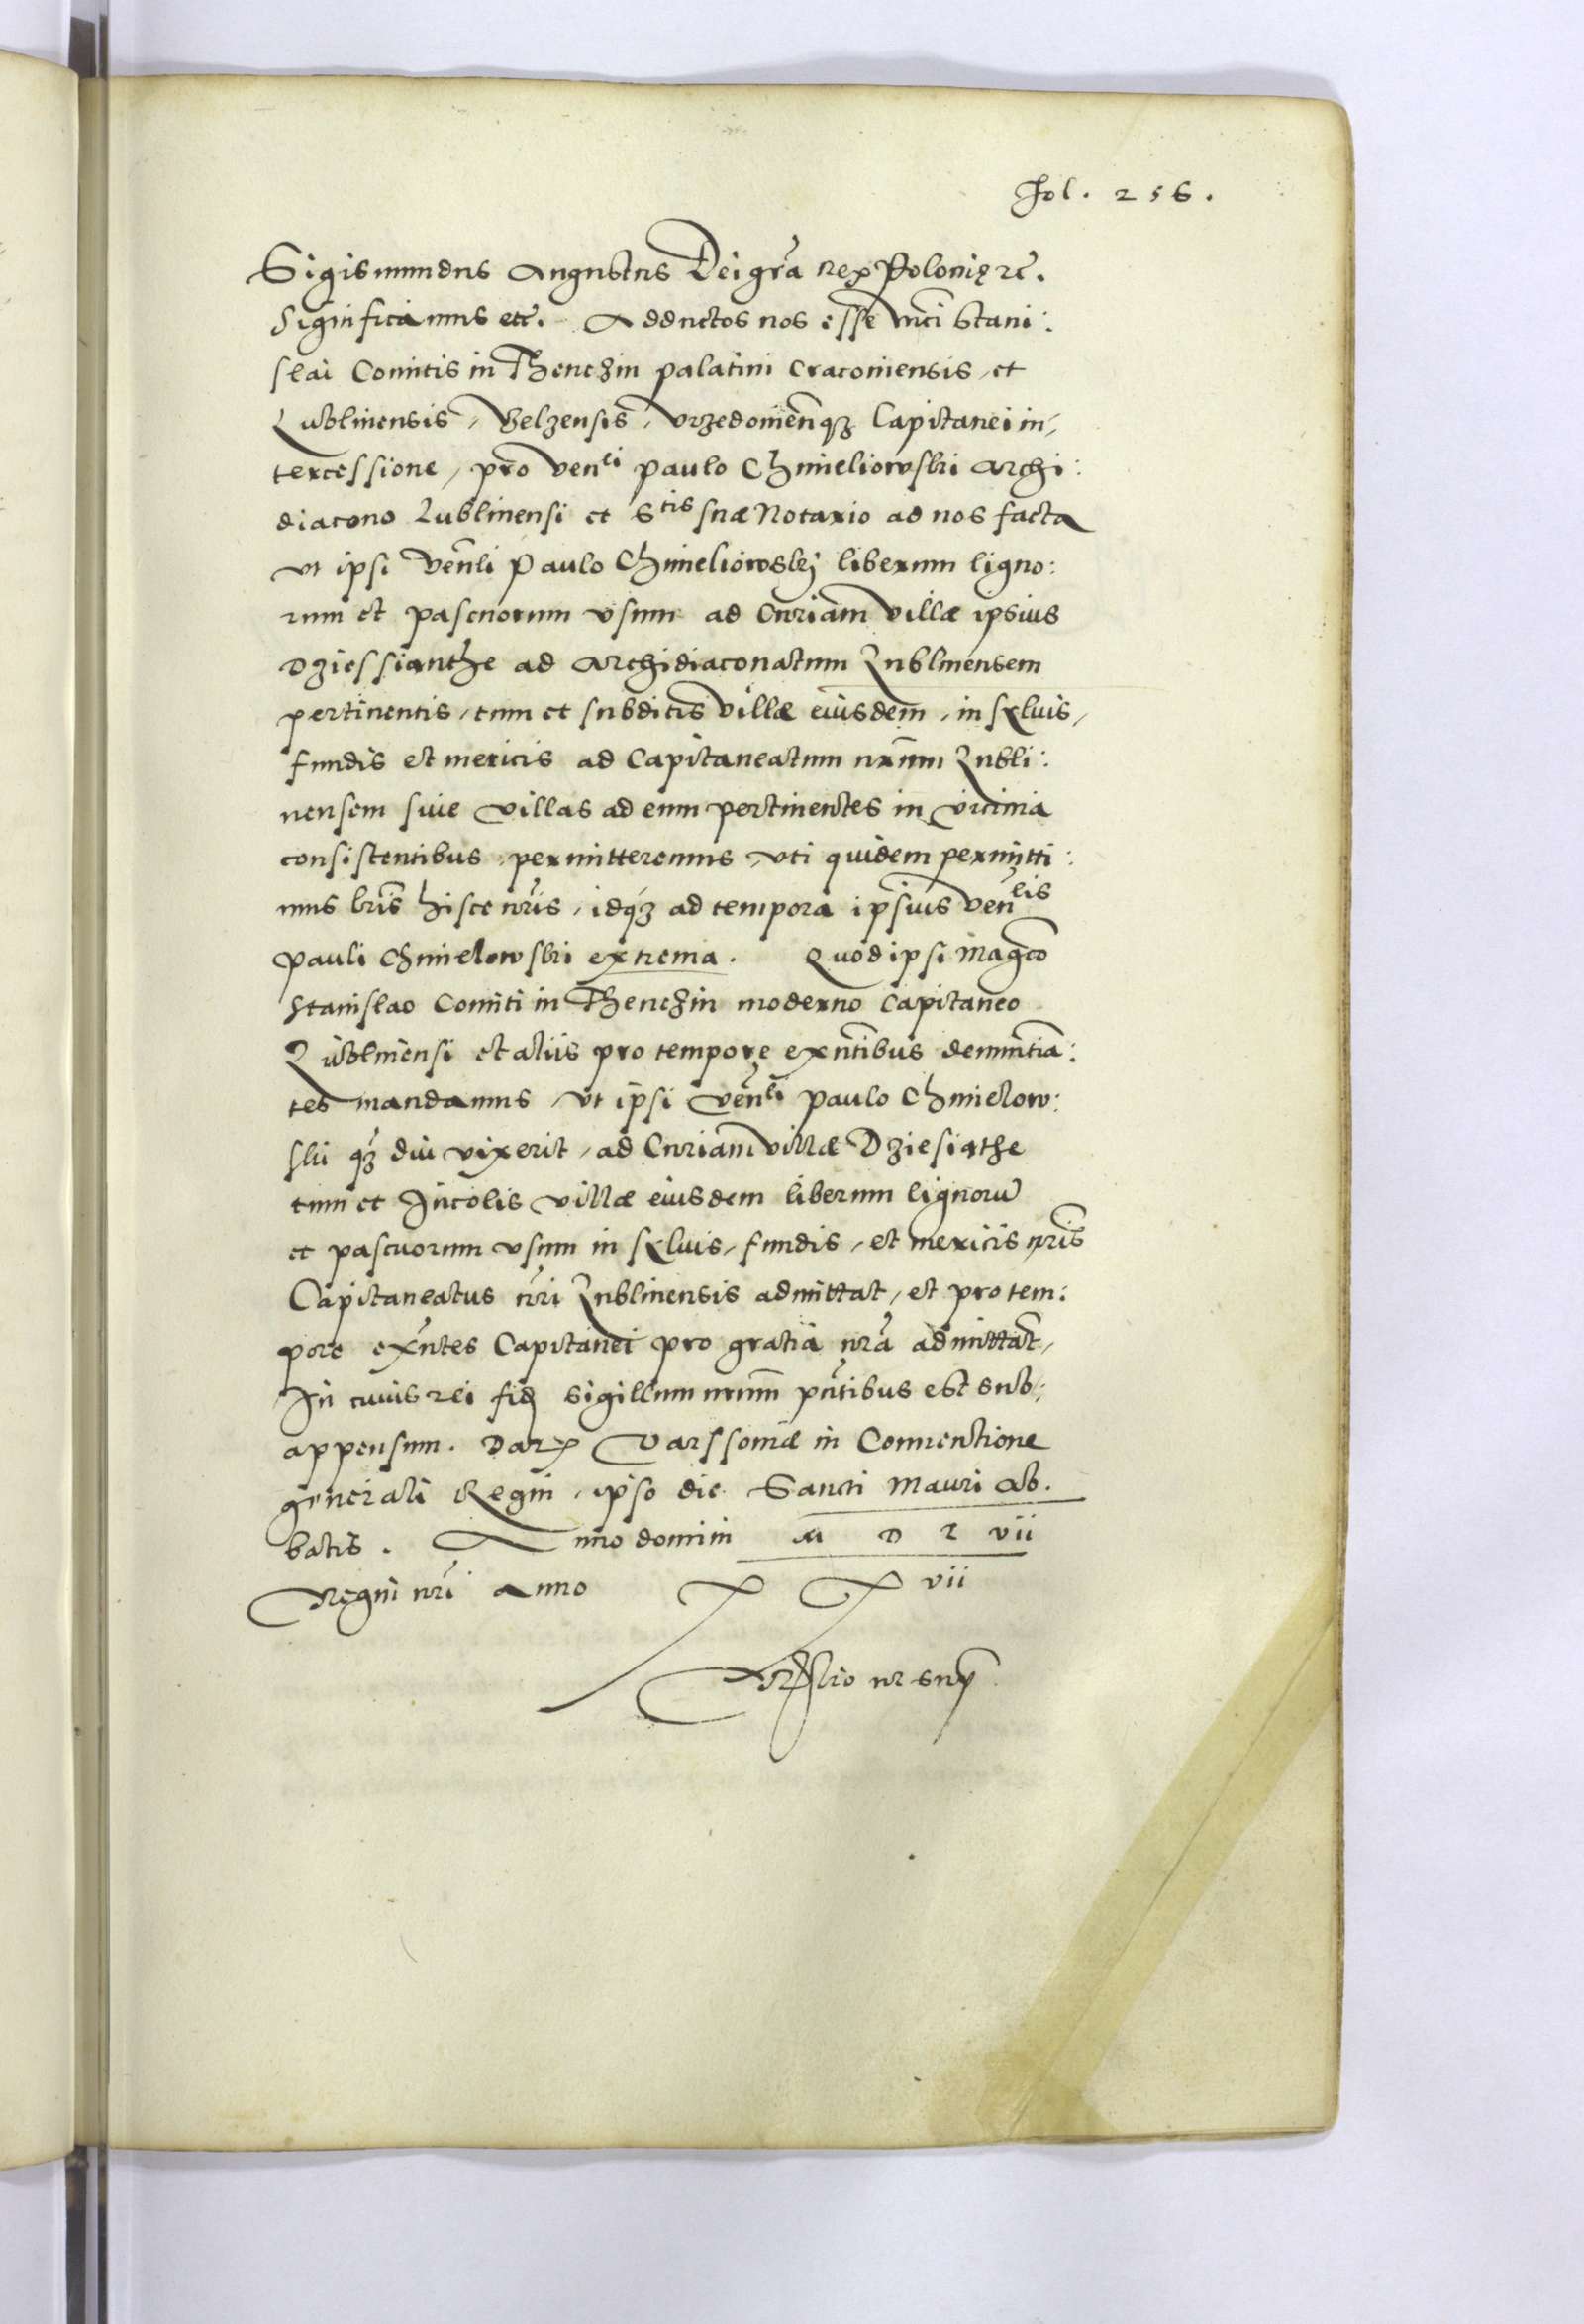 Fol. 256.
Sigismundus Augustus Dei gra͂ rex Polonię rc̃.
Significamus etc̃. Adductos nos esse Mci Stani:
slai Comitis in Thenczin palatini Cracoviensis, et
Lublinensis, Belzensis, Vrzedovien̄ qȝ Capitanei in,
tercessione, pro Venli Paulo Chmieliowski Archi:
diacono Lublinensi et Stis suæ Notario ad nos facta
vt ipsi Ven̄li Paulo Chmieliowskj liberum ligno:
rum et pascuorum vsum ad Curiam villæ ipsius
Dziessianthe ad Archidiaconatum Lublinensem
pertinentis, tum et subditis villæ eiusdem, in sylvis,
fundis et mericis ad Capitaneatum nr̄um Lubli:
nensem sive villas ad eum pertinentes in vicinia
consistentibus, permitteremus, vti quidem permitti:
mus lr̄is hisce nr̄is, idqȝ ad tempora ipsius Ven̄lis
Pauli Chmielowski extrema. Quod ipsi Magco
Stanislao Comiti in Thenczin moderno Capitaneo
Lublinensi et aliis pro tempore exn̄tibus denuntiā:
tes mandamus, vt ipsi Ven̄li Paulo Chmielow:
ski qȝ diu vixerit, ad Curiam villæ Dziesiąthe
tum et Incolis villæ eiusdem liberum lignorū
et pascuorum vsum in sylvis, fundis, et mericis nr̄is
Capitaneatus nr̄i Lublinensis admittat, et pro tem:
pore exn̄tes Capitanei pro gratia nr̄a admittant,
In cuius rei fidē sigillum nr̄um pn̄tibus est sub:
appensum. Dat Varssoviæ in Conventione
generali Regni, ipso die Sancti Mauri Ab.
batis. Anno domini M D L vii
Regni nr̄i anno X X vii